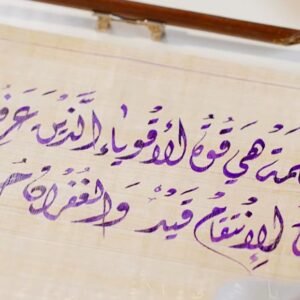 هي قُوَّةُ الأقوياءِ الَّذينَ
الإِنتقامُ قَيدٌ وَالغُفرانُ